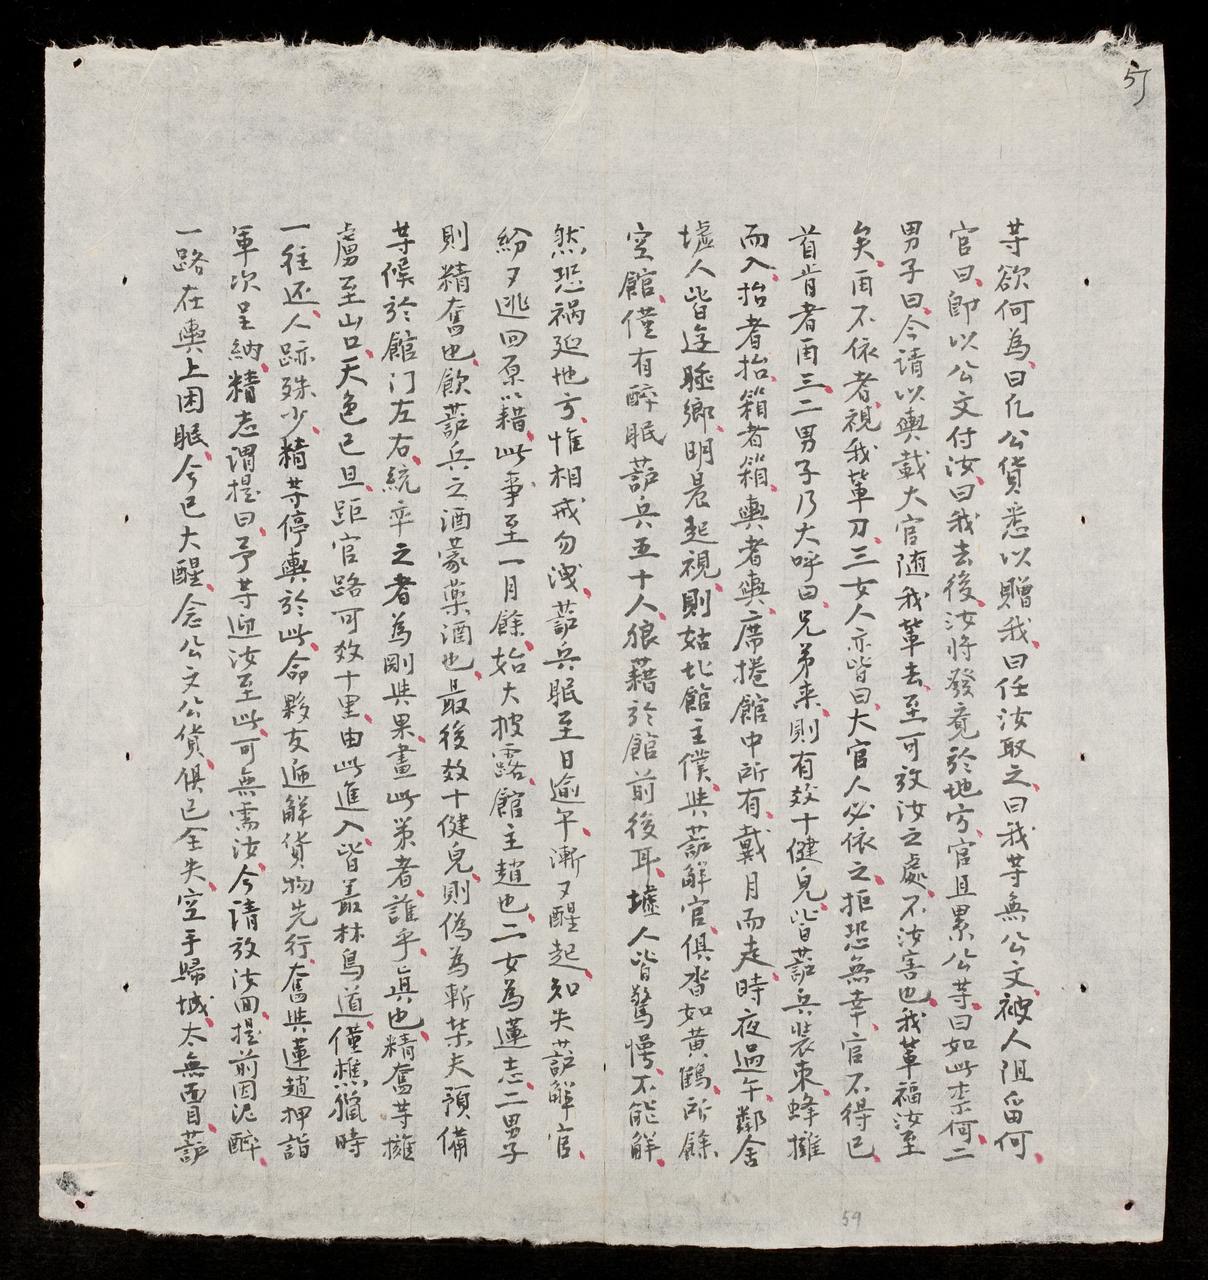 57
等欲何為曰凡公貨悉以贈我曰任汝取之曰我等無公文被人阻畱何
官曰卽以公文付汝曰我去後汝將發覺於地方官且累公等曰如此柰何二
男子曰今請以輿載大官隨我輩去至可放汝之處不汝害也我輩福汝至
矣再不依者視我輩刀三女人亦皆曰大官人必依之拒恐無幸官不得已
首肯者再三二男子乃大呼曰兄弟来則有数十健兒皆護兵裝束蜂擁
而入抬者抬箱者箱輿者輿席捲館中所有戴月而走時夜過午鄰舍
墟人皆逞睡鄉明晨起視則姑北館主僕與護解官俱杳如黃鶴所餘
空館僅有醉眠護兵五十人狼藉於館前後耳墟人皆驚愕不能解
然恐禍延地方惟相戒勿洩護兵眠至日逾午漸々醒起知失護解官
紛々逃回原籍此事至一月餘始大披露館主趙也二女為蓮志二男子
則精奮也飲護兵之酒蒙藥酒也最後数十健兒則偽為斬柴夫預備
等候於館门左右統率之者為剛與果畫此策者誰乎眞也精奮等擁
虜至山口天色已旦距官路可数十里由此進入皆叢林鳥道僅樵獵時
一往还人跡殊少精等停輿於此命夥友遞解貨物先行奮與蓮趙押詣
軍次呈納精志謂提曰予等迎汝至此可無需汝今請放汝囬提前因泥醉
一路在輿上困眠今已大醒念公文公貨俱已全失空手歸城太無面目護
59